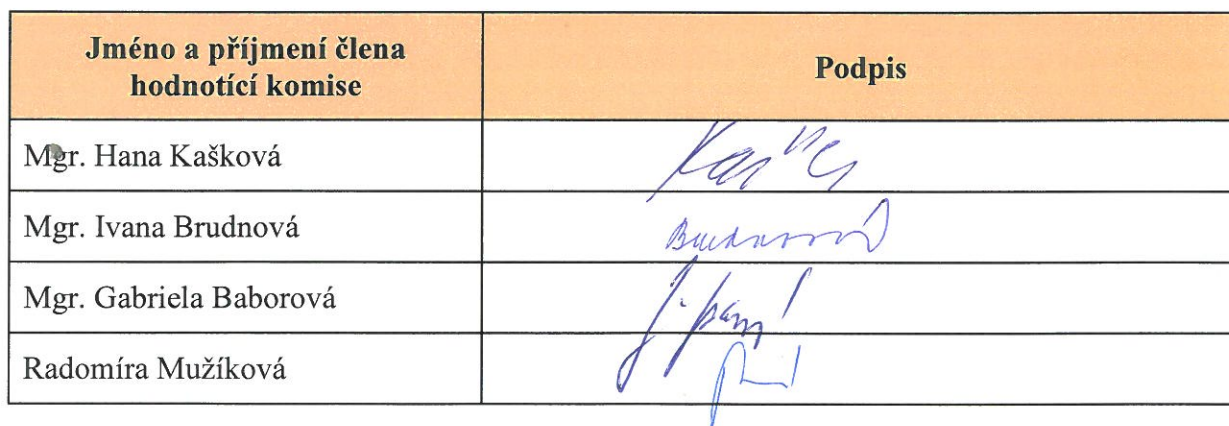 Jméno a příjmení člena
hodnotící komise
Podpis
Mgr. Hana Kašková
Mgr. Ivana Brudnová
Brudnová
Mgr. Gabriela Baborová
Radomíra Mužíková